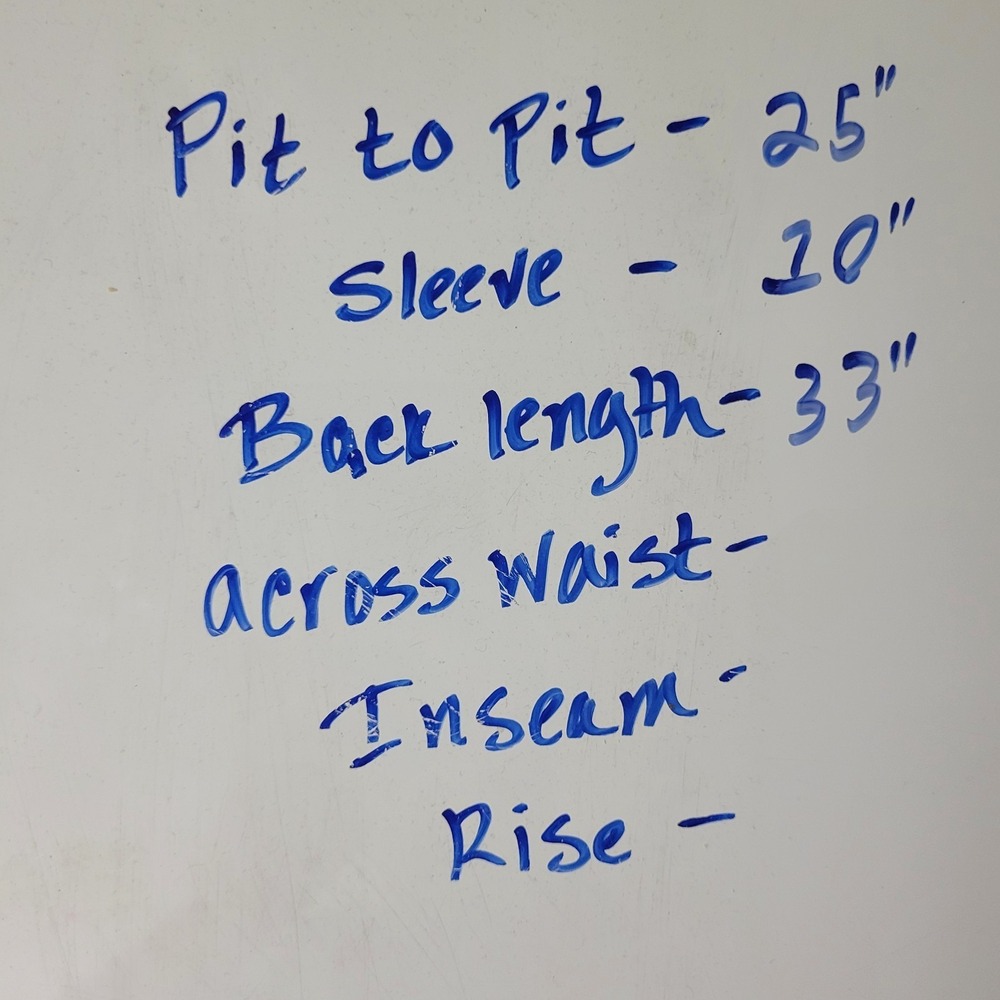 Pit to Pit - 25"
Sleeve - 10"
Back length - 33"
across waist -
Inseam -
Rise -